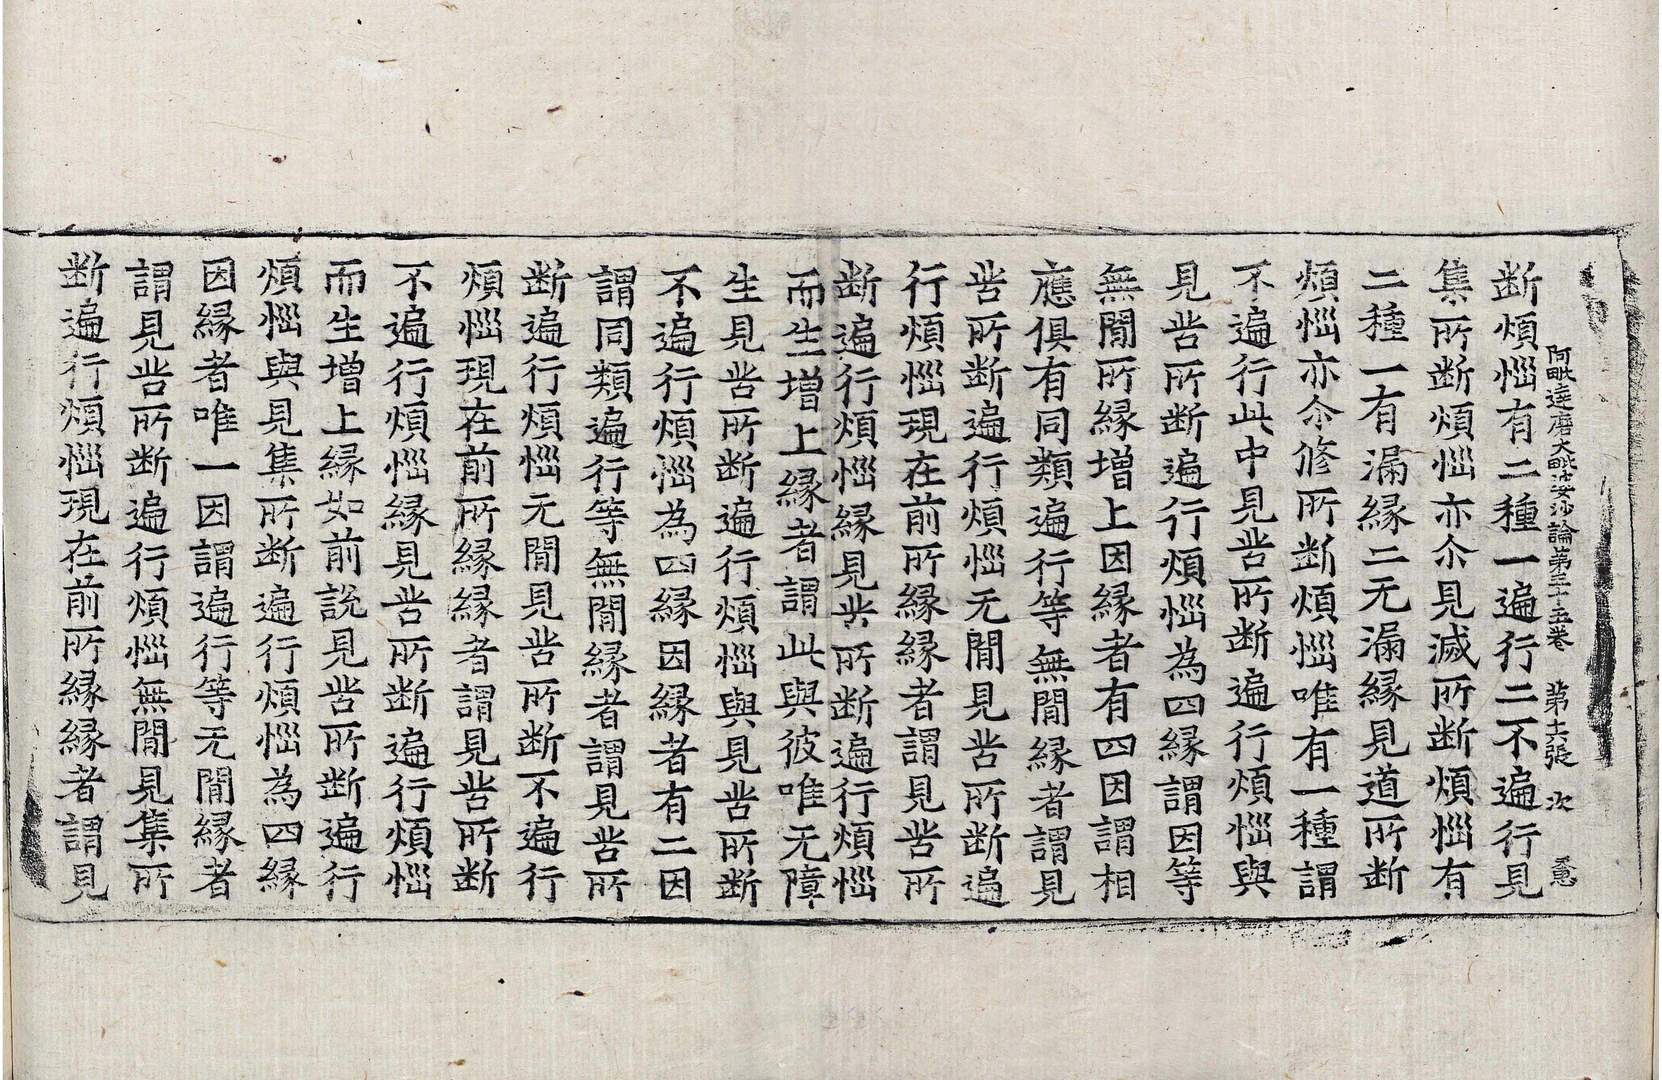 阿毗達磨大毗婆沙論第三十五卷 第六張 次
断煩惱有二種一遍行二不遍行見
集所断煩惱亦尒見滅所断煩惱有
二種一有漏緣二无漏緣見道所断
煩惱亦尒修所断煩惱唯有一種謂
不遍行此中見苦所断遍行煩惱與
見苦所断遍行煩惱為四緣謂因等
無閒所緣增上因緣者有四因謂相
應俱有同類遍行等無閒緣者謂見
苦所断遍行煩惱无閒見苦所断遍
行煩惱現在前所緣緣者謂見苦所
断遍行煩惱緣見苦所断遍行煩惱
而生增上緣者謂此與彼唯无障
生見苦所断遍行煩惱與見苦所断
不遍行煩惱為四緣因緣者有二因
謂同類遍行等無閒緣者謂見苦所
断遍行煩惱无閒見苦所断不遍行
煩惱現在前所緣緣者謂見苦所断
不遍行煩惱緣見苦所断遍行煩惱
而生增上緣如前說見苦所断遍行
煩惱與見集所断遍行煩惱為四緣
因緣者唯一因謂遍行等无閒緣者
謂見苦所断遍行煩惱無閒見集所
断遍行煩惱現在前所緣緣者謂見